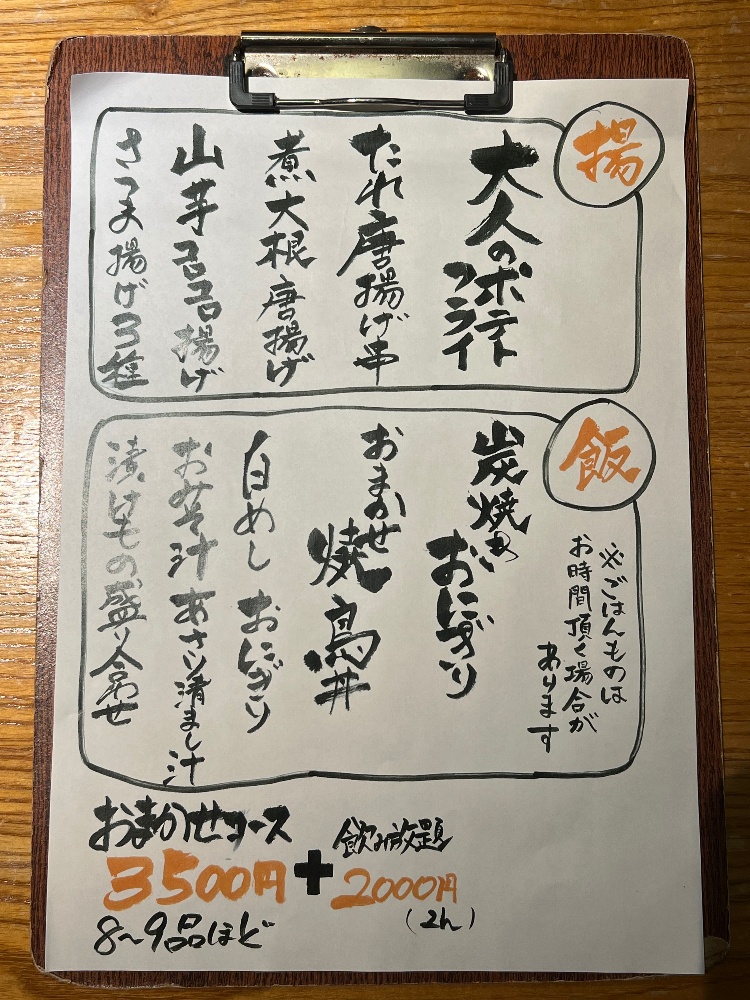 揚
大人のポテトフライ
たれ唐揚げ串
煮大根唐揚げ
山芋コロコロ揚げ
さつま揚げ3種
飯
※ごはんものは
お時間頂く場合が
あります
炭焼きおにぎり
おまかせ焼鳥丼
白めし おにぎり
おみそ汁 あさり済まし汁
漬けもの盛り合わせ
おまかせコース
3500円
8〜9品ほど
+
飲み放題
2000円
(2h)